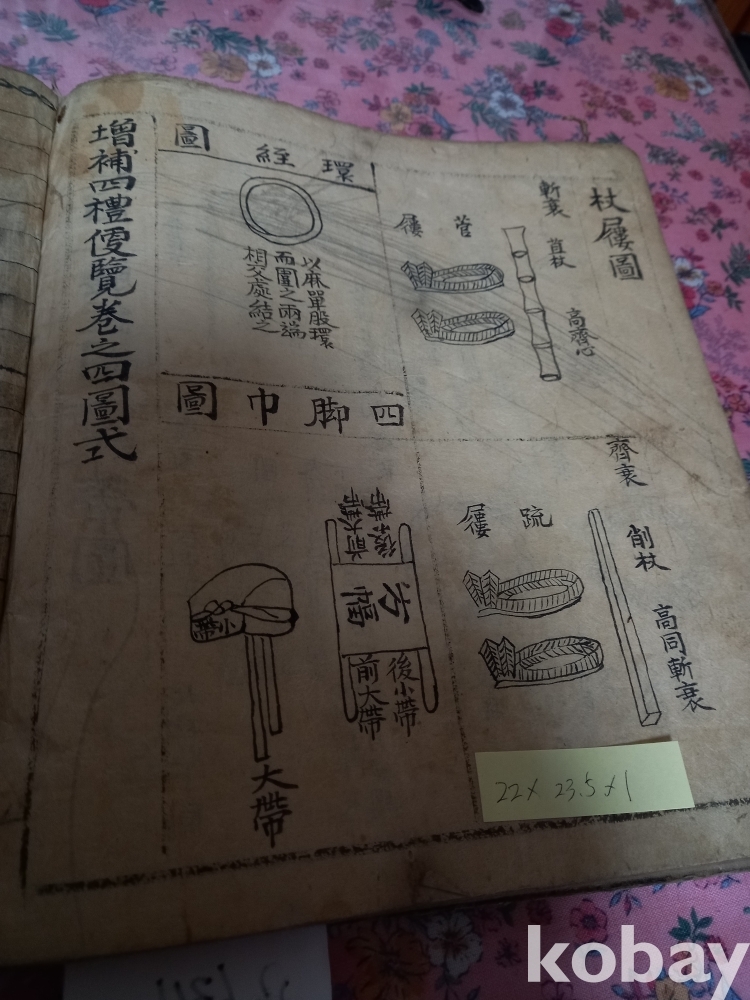 杖屨圖
斬衰 苴杖 高齊心
菅 屨
齊衰
削杖
高同斬衰
疏 屨
環 絰 圖
以麻單股環
而圍之兩端
相交處結之
四 脚 巾 圖
方幅
後小帶
前大帶
大帶
小帶
增補四禮便覽卷之四圖式
22 x 23.5 x 1
kobay